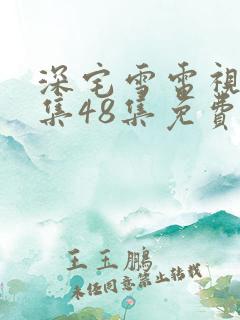 深宅雪雷視
集48集免費
王玉鵬
未任同意禁止转载